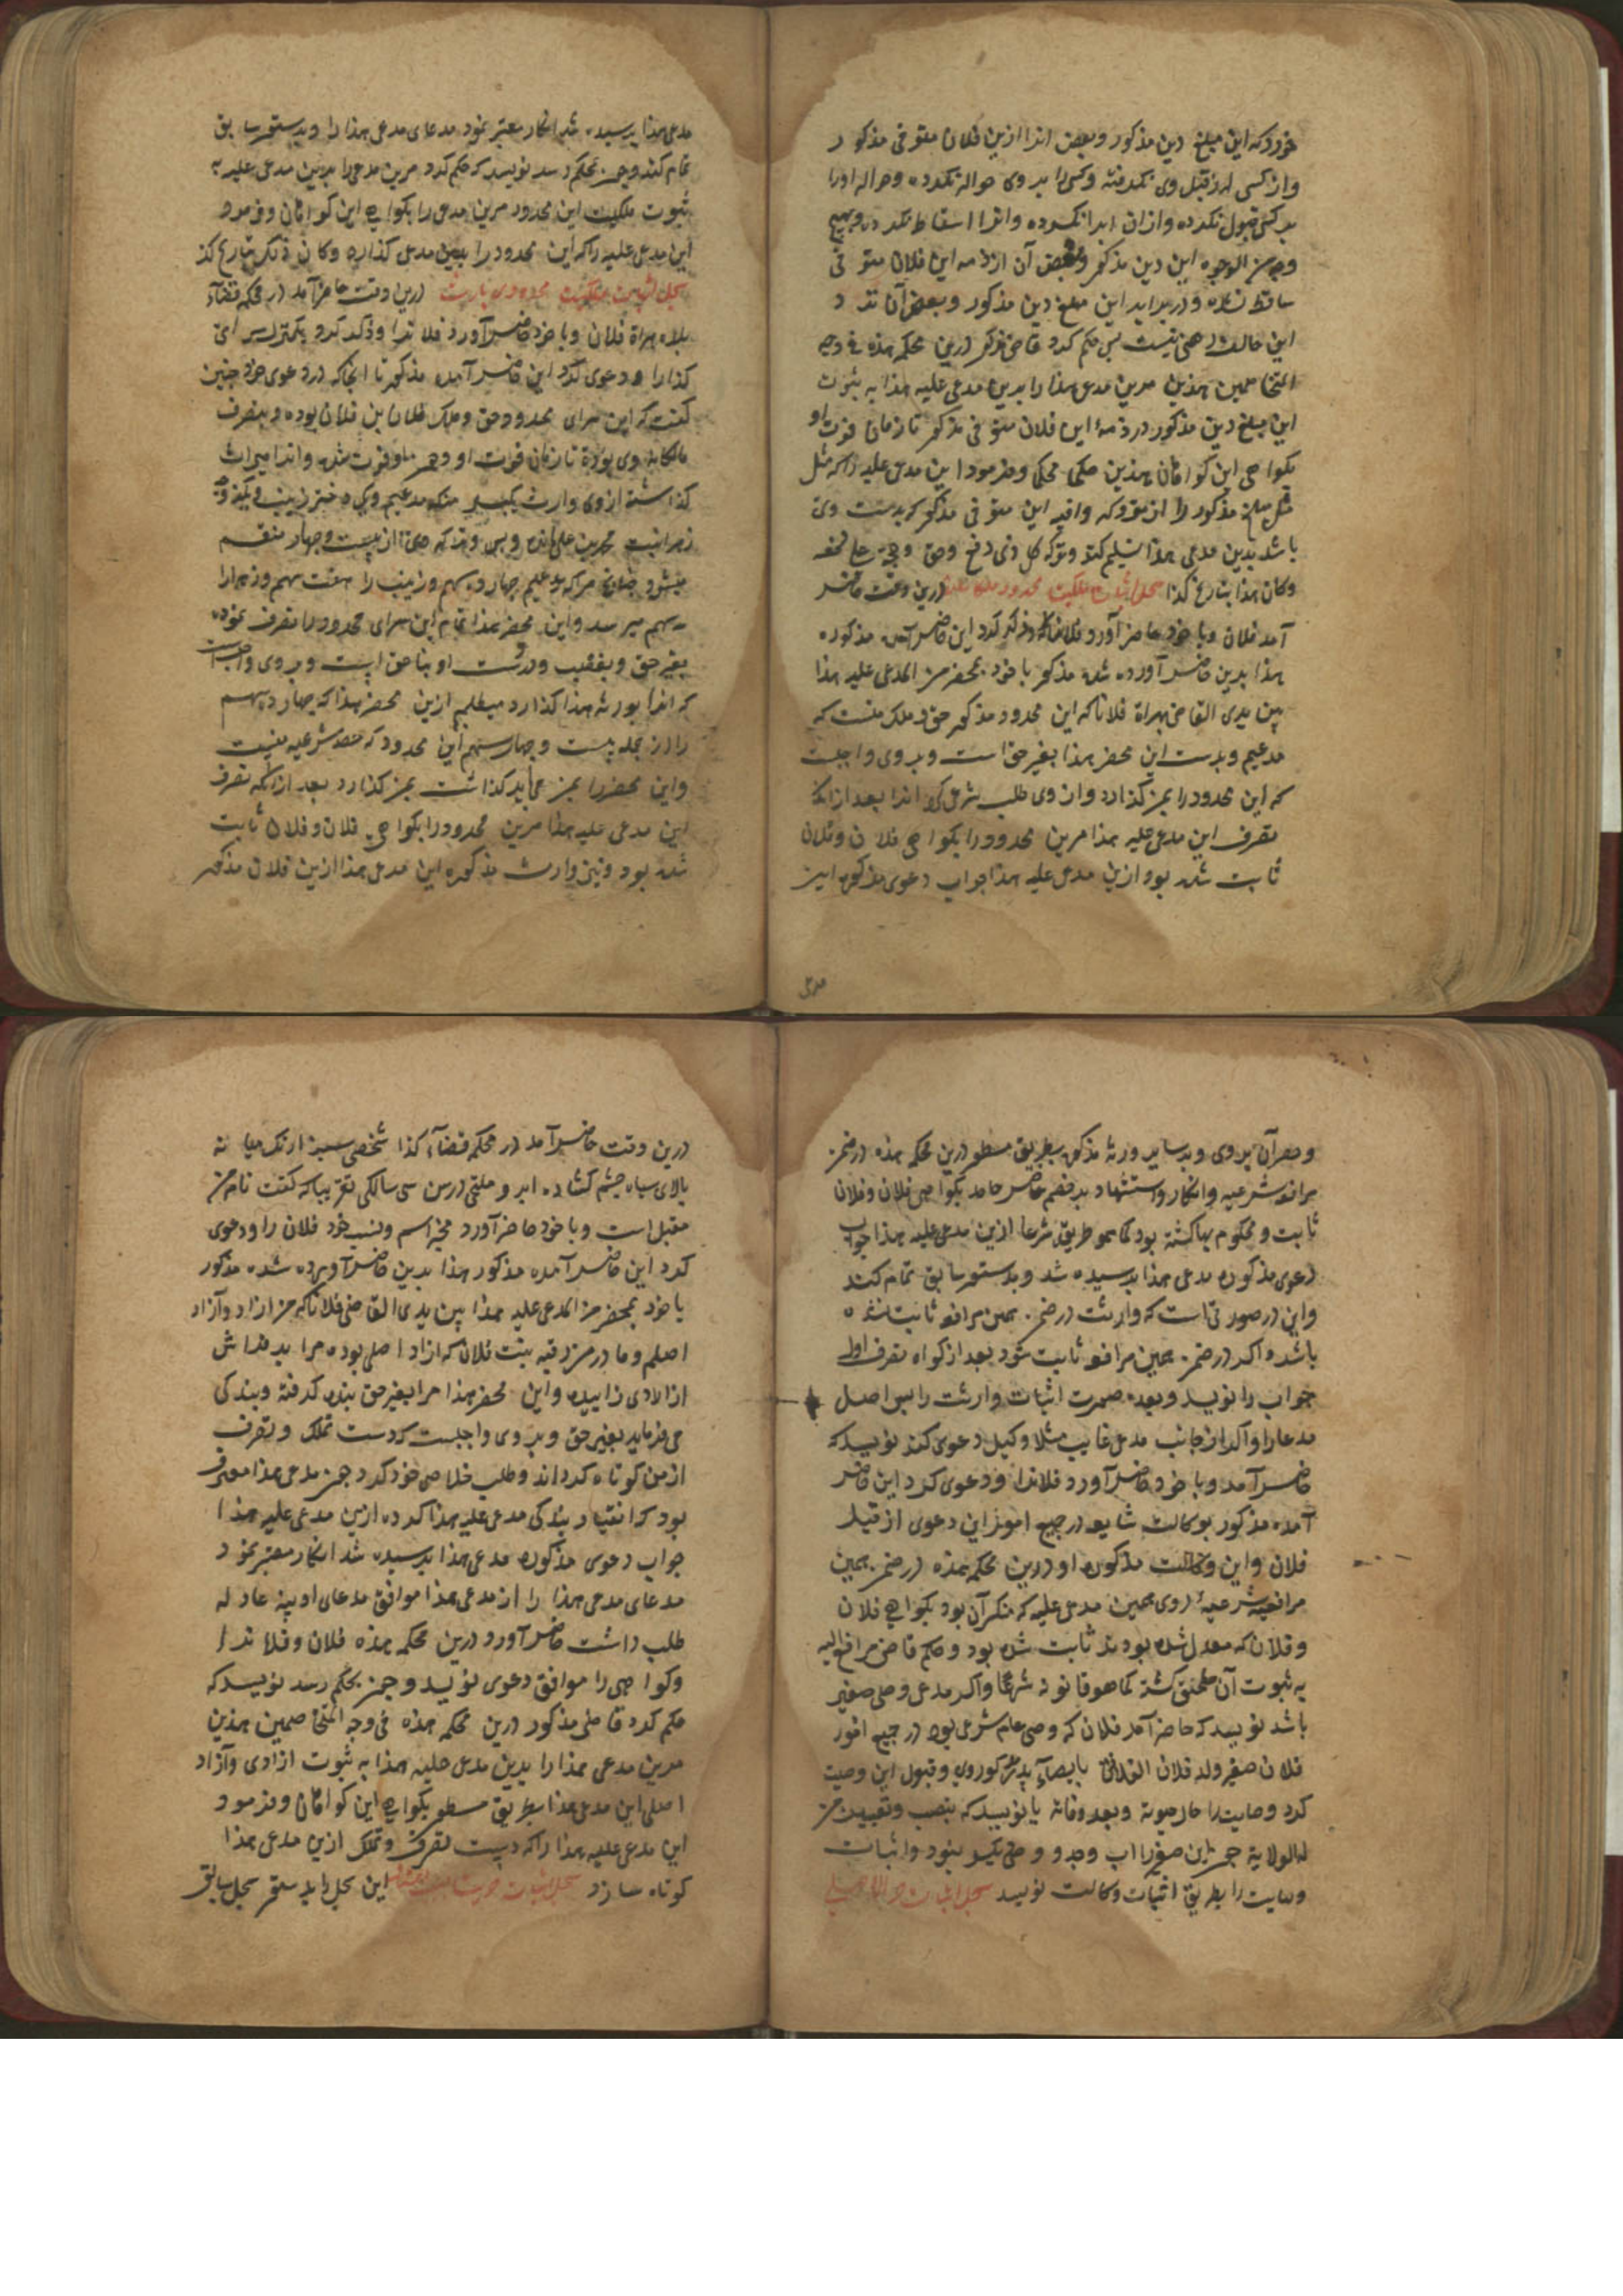 خود که این مبلغ دین مذکور و بعض انرا ازین فلان متوفی مذکور
و از کسی از قبل وی نگرفته و کسی را بر وی حواله نکرده و حواله او را
بر کسی قبول نکرده و از ان ابرا نکرده و انرا اسقاط نکرده و بهیچ
وجه من الوجوه این دین مذکور و بعض آن از ذمه این فلان متوفی
ساقط نشده و در برابر این مبلغ دین مذکور و بعض آن نزد
این حالف رهنی نیست پس حکم کرد قاضی مذکور درین محکمه هذه فی وجه
المتخاصمین هذین مرین مدعی هذا را برین مدعی علیه هذا به ثبوت
این مبلغ دین مذکور در ذمهٔ این فلان متوفی مذکور تا زمان فوت او
بگواهی این گواهان هذین حکما محکما و فرمود این مدعی علیه را که مثل
مبلغ مذکور را از متروکه وافیه این متوفی مذکور که بدست وی
باشد بدین مدعی هذا تسلیم کند و ترک کل ذی دفع و حق و حجه علی
و کان هذا بتاریخ کذا سجل اثبات ملکیت محدود درین وقت حاضر
آمد فلان و با خود حاضر آورد فلانرا و ذکر کرد این حاضر آمده مذکوره
هذا برین حاضر آورده شده مذکور با خود بمحضر من المدعی علیه هذا
بین یدی القاضی بهراة فلانا که این محدود مذکور حق و ملک منست که
مدعیم و بدست این محضر هذا بغیر حق است و بر وی واجبست
که این محدود را بمن گذارد و از وی طلب شرعی کرد انرا بعد از انکه
تصرف این مدعی علیه هذا مرین محدود را بگواهی فلان و فلان
ثابت شده بود ازین مدعی علیه هذا جواب دعوی مذکوره این
مدعی
مدعی هذا پرسیده شد انکار معتبر نمود مدعای مدعی هذا را و بدستور سابق
تمام کند و چون بحکم رسد نویسد که حکم کرد مرین مدعی را برین مدعی علیه به
ثبوت ملکیت این محدود مرین مدعی را بگواهی این گواهان و فرمود
این مدعی علیه را که این محدود را بدین مدعی گذارد و کان ذلک بتاریخ کذا
سجل اثبات ملکیت محدودی بارث درین وقت حاضر آمد در محکمه قضاء
بلده هراة فلان و با خود حاضر آورد فلانرا و ذکر کرد یکمنزل سرای
کذا را و دعوی کرد این حاضر آمده مذکور تا انجا که در دعوی خود چنین
گفت که این سرای محدود حق و ملک فلان بن فلان بوده و بتصرف
مالکانه وی بوده تا زمان فوت او و چون او فوت شده و انرا میراث
گذاشته از وی وارث یکپسر منکه مدعیم و یک دختر زینب و یکزوجه
زهرا بنت محمد بن علی مانده و بس و ترکه وی از بیست و چهار منقسم
میشود چنانچه مرا که مدعیم چهارده سهم و زینب را هفت سهم و زهرا را
سه سهم میرسد و این محضر هذا تمام این سرای محدود را تصرف نموده
بغیر حق و بغصب و در دست او بناحق است و بر وی واجبست
که انرا بورثه هذا گذارد میطلبم ازین محضر هذا که چهارده سهم
را از جمله بیست و چهار سهم این محدود که حصه شرعیه منست
و این محضر را بمن می باید گذاشت بمن گذارد بعد از انکه تصرف
این مدعی علیه هذا مرین محدود را بگواهی فلان و فلان ثابت
شده بود و نیز وارث مذکوره این مدعی هذا ازین فلان مذکور
و حصر آن بر وی و بر سایر ورثه مذکور بطریق مسطور درین محکمه هذه در ضمن
مرافعه شرعیه و انکار و استشهاد بر خصم حاضر جاحد بگواهی فلان و فلان
ثابت و محکوم بها گشته بود کما هو طریقه شرعا ازین مدعی علیه هذا جواب
دعوی مذکوره مدعی هذا پرسیده شد و بدستور سابق تمام کند
و این در صورتی است که وارثت در ضمن همین مرافعه ثابت نشده
باشد و اگر در ضمن همین مرافعه ثابت شود بعد از گواه تصرف اول
جواب را نویسد و بعده صورت اثبات وارثت را پس اصل
مدعا را و اگر از جانب مدعی غایب مثلا وکیل دعوی کند نویسد که
حاضر آمد و با خود حاضر آورد فلانرا و دعوی کرد این حاضر
آمده مذکور بوکالت شایعه در جمیع امور این دعوی از قبل
فلان و این وکالت مذکوره او درین محکمه هذه در ضمن همین
مرافعهٔ شرعیهٔ روی همین مدعی علیه که منکر آن بود بگواهی فلان
و فلان که معدل شده بودند ثابت شده بود و حکم قاضی مرافع الیه
به ثبوت آن ملحق گشته کما هو قانونه شرعا و اگر مدعی وصی صغیر
باشد نویسد که حاضر آمد فلان که وصی عام شرعی بود در جمیع امور
فلان صغیر ولد فلان الفلانی بایصاء پدر مذکور وی و قبول این وصیت
کرد وصایت را حال حیوته و بعد وفاته یا نویسد که بنصب و تعیین من
له الولایة چون این صغیر را اب و جد و وصی دیگر نبود و اثبات
وصایت را بطریق اثبات وکالت نویسد سجل اثبات حر الاصلی
درین وقت حاضر آمد در محکمه قضاء کذا شخصی سبز ارنک میانه
بالای سیاه چشم گشاده ابرو ملتحی در سن سی سالگی تقریبا که گفت نام من
مقبل است و با خود حاضر آورد مخبر اسم و نسب خود فلان را و دعوی
کرد این حاضر آمده مذکور هذا بدین حاضر آورده شده مذکور
با خود بمحضر من المدعی علیه هذا بین یدی القاضی فلانا که من ازاد و آزاد
اصلم و مادر من رقیه بنت فلان که ازاد اصلی بوده مرا بر فراش
ازادی زاییده و این محضر هذا مرا بغیر حق بنده گرفته و بندگی
می فرماید بغیر حق و بر وی واجبست که دست تملک و تصرف
از من کوتاه گرداند و طلب خلاصی خود کرد چون مدعی هذا معترف
بود که انقیاد بندگی مدعی علیه هذا کرده ازین مدعی علیه هذا
جواب دعوی مذکوره مدعی هذا پرسیده شد انکار معتبر نمود
مدعای مدعی هذا را از مدعی هذا موافق مدعای او بینه عادله
طلب داشت حاضر آورد درین محکمه هذه فلان و فلانرا
و گواهی را موافق دعوی نویسد و چون بحکم رسد نویسد که
حکم کرد قاضی مذکور درین محکمه هذه فی وجه المتخاصمین هذین
مرین مدعی هذا را بدین مدعی علیه هذا به ثبوت ازادی و آزاد
اصلی این مدعی هذا بطریق مسطور بگواهی این گواهان و فرمود
این مدعی علیه هذا را که دست تصرف و تملک ازین مدعی هذا
کوتاه سازد سجل اثبات حریت این سجل را بدستور سجل سابق